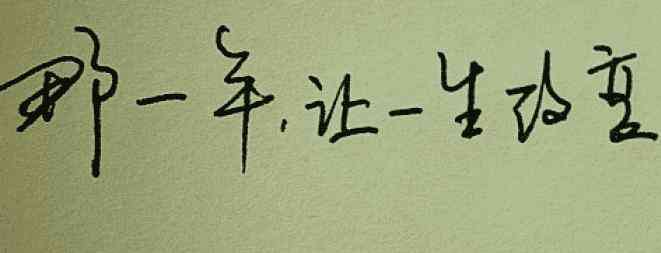 那一年,让一生改变